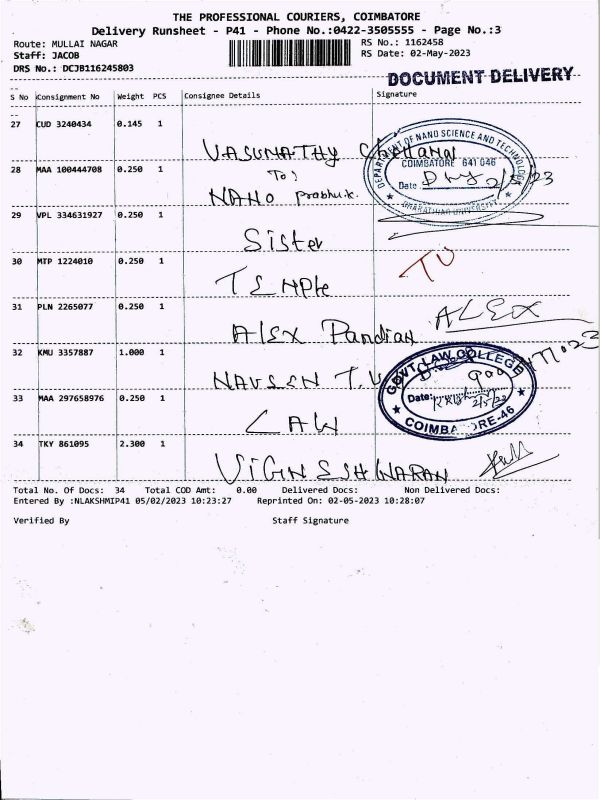 THE PROFESSIONAL COURIERS, COIMBATORE
Delivery Runsheet - P41 - Phone No.:0422-3505555 - Page No.:3
Route: MULLAI NAGAR RS No.: 1162458
Staff: JACOB RS Date: 02-May-2023
DRS No.: DCJB116245803
DOCUMENT DELIVERY
S No Consignment No Weight PCS Consignee Details Signature
27 CUD 3240434 0.145 1
VASUMATHY
DEPARTMENT OF NANO SCIENCE AND TECHNOLOGY
COIMBATORE 641 046
Date
BHARATHIAR UNIVERSITY
28 MAA 100444708 0.250 1
To:
NANO Prabhu.k.
29 VPL 334631927 0.250 1
Sister
30 MTP 1224010 0.250 1
TEMPle
31 PLN 2265077 0.250 1
AlEX Pandian ALEX
32 KMU 3357887 1.000 1
NAVEEN T.V
GOVT. LAW COLLEGE
Date: 2/5/23
COIMBATORE-46
33 MAA 297658976 0.250 1
LAW
34 TKY 861095 2.300 1
ViGNESHWARAN
Total No. Of Docs: 34 Total COD Amt: 0.00 Delivered Docs: Non Delivered Docs:
Entered By :NLAKSHMIP41 05/02/2023 10:23:27 Reprinted On: 02-05-2023 10:28:07
Verified By Staff Signature